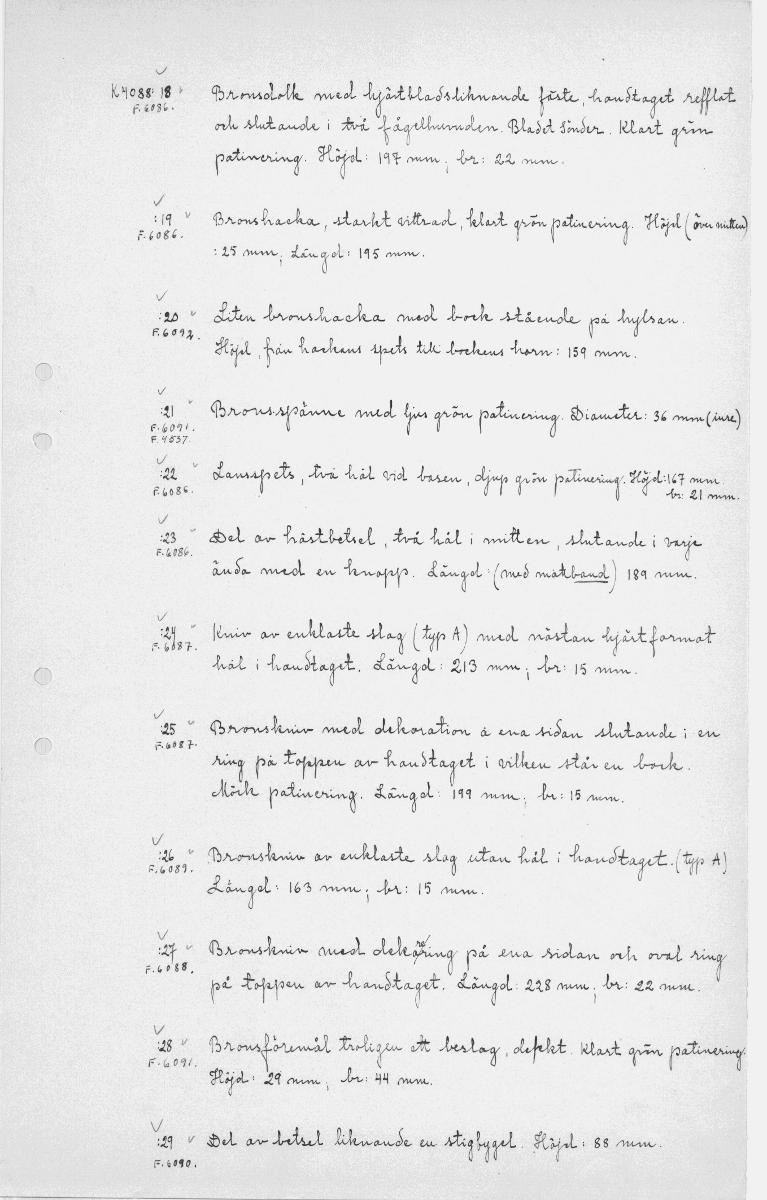 K4088:18 Bronsdolk med hjärtbladsliknande fäste, handtaget refflat
F.6086. och slutande i två fågelhuvuden. Bladet sönder. Klart grön
patinering. Höjd: 197 mm; br: 22 mm.
:19 Bronshacka, starkt vittrad, klart grön patinering. Höjd (över mitten)
F.6086. :25 mm; Längd: 195 mm.
:20 Liten bronshacka med bock stående på hylsan.
F.6092. Höjd, från hackans spets till bockens horn: 159 mm.
:21 Bronsspänne med ljus grön patinering. Diameter: 36 mm (inre)
F.6091.
F.4537.
:22 Lansspets, två hål vid basen, djup grön patinering. Höjd: 167 mm.
F.6086. br: 21 mm.
:23 Del av hästbetsel, två hål i mitten, slutande i varje
F.6086. ända med en knapp. Längd: (med måttband) 189 mm.
:24 Kniv av enklaste slag (typ A) med nästan hjärtformat
F.6087. hål i handtaget. Längd: 213 mm; br: 15 mm.
:25 Bronskniv med dekoration å ena sidan slutande i en
F.6087. ring på toppen av handtaget i vilken står en bock.
Mörk patinering. Längd: 199 mm; br: 15 mm.
:26 Bronskniv av enklaste slag utan hål i handtaget. (typ A)
F.6089. Längd: 163 mm; br: 15 mm.
:27 Bronskniv med dekorering på ena sidan och oval ring
F.6088. på toppen av handtaget. Längd: 228 mm; br: 22 mm.
:28 Bronsföremål troligen ett beslag, defekt. Klart grön patinering.
F.6091. Höjd: 29 mm; br: 44 mm.
:29 Del av betsel liknande en stigbygel. Höjd: 88 mm.
F.6090.